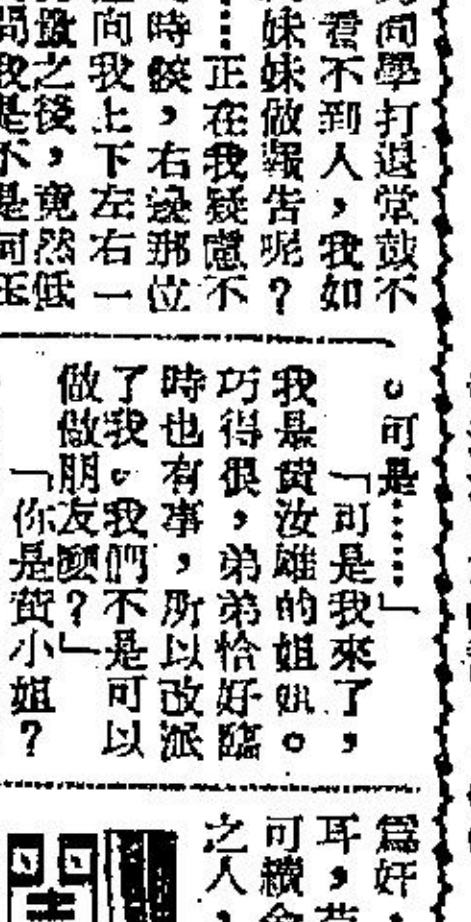 同學打退堂鼓不
看不到人，我如
妹妹做報告呢？
……正在我疑慮不
時候，右邊那位
向我上下左右一
之後，竟然低
問我是不是
。可是……」
「可是我來了，
我是黃汝雄的姐姐。
巧得很，弟弟恰好臨
時也有事，所以改派
了我。我們不是可以
做做朋友麼？」
「你是黃小姐？
爲奸
耳，
可續
之人，